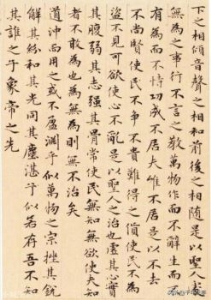 下之相傾音聲之相和前後之相隨是以聖人處
無為之事行不言之教萬物作而不辭生而
有為而不恃功成不居夫唯不居是以不去
不尚賢使民不爭不貴難得之貨使民不為
盜不見可欲使心不亂是以聖人之治虛其心實
其腹弱其志強其骨常使民無知無欲使夫知
者不敢為也為無為則無不治矣
道沖而用之或不盈淵乎似萬物之宗挫其銳
解其紛和其光同其塵湛乎似若存吾不知
其誰之子象帝之先